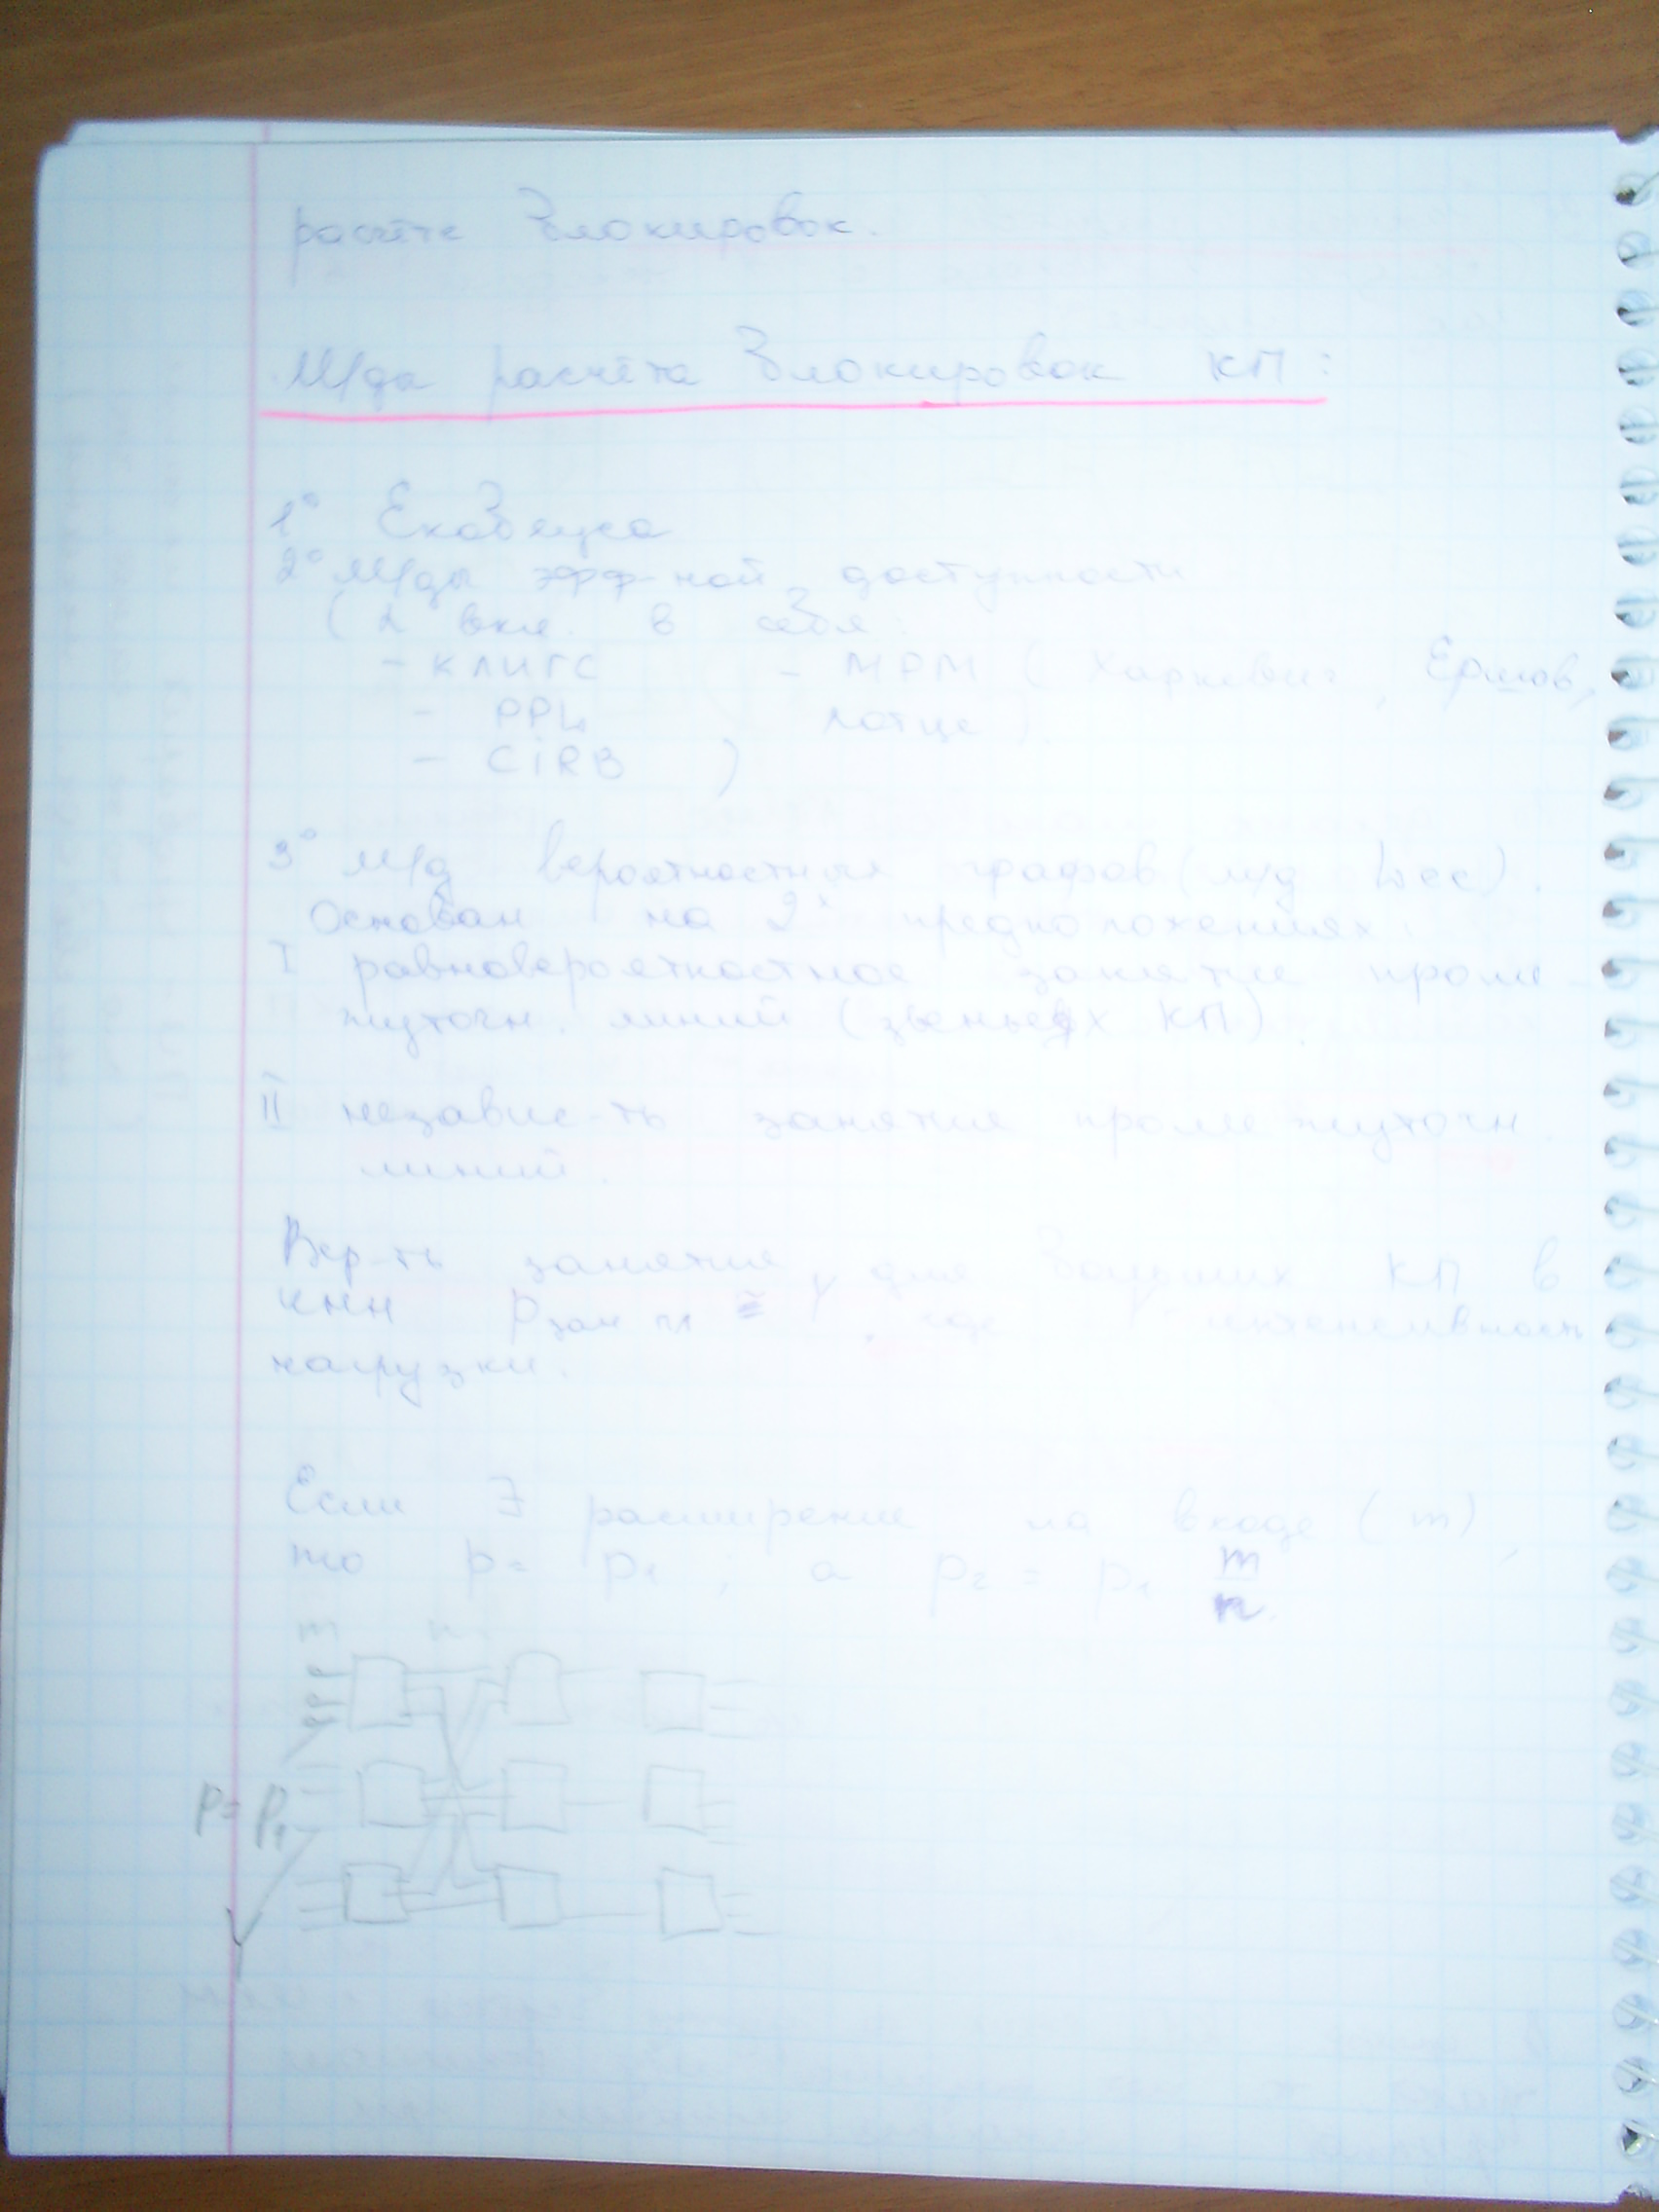 расчёте блокировок.
М/ды расчёта блокировок КП:
1° Якобеуса
2° М/ды эфф-ной доступности
(2 вкл. в себя:
- КЛИГС - МРМ (Харкевич, Ершов,
- PPL Лотце)
- CIRB )
3° М/д вероятностных графов (м/д Lee).
Основан на 2х предположениях:
I равновероятностное занятие проме-
жуточн. линий (звеньях КП).
II независ-ть занятия промежуточн.
линий.
Вер-ть занятия, для больших КП в
ЧНН Pзан пл ≅ y, где y - интенсивность
нагрузки.
Если ∃ расширение на входе (m),
то p = p₁; а p₂ = p₁ m/n.
m n
p
p
p
p = p₁